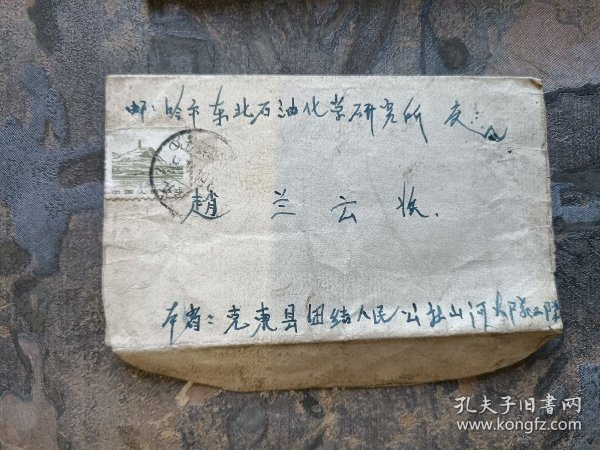 邮：哈市东北石油化学研究所 交
趙兰云收.
本省：克东县团结人民公社山河大队二队
孔夫子旧书网
www.kongfz.com